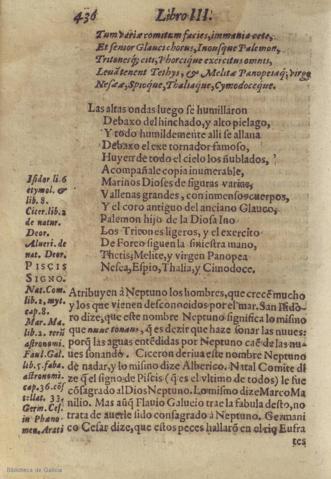 436 Libro III.
Tum variæ comitum facies, immania cete,
Et senior Glauci chorus, Inousque Palemon,
Tritonesq; citi, Phorcique exercitus omnis,
Leuà tenent Tethys, & Melite Panopeaq; virgo
Nesææ, Spioque, Thaliaque, Cymodoceque.
Las altas ondas luego se humillaron
Debaxo del hinchado, y alto pielago,
Y todo humildemente alli se allana
Debaxo el exe tornador famoso,
Huyen de todo el cielo los ñublados,
Acompañale copia inumerable,
Marinos Dioses de figuras varias,
Vallenas grandes, con inmensos cuerpos,
Y el coro antiguo del anciano Glauco,
Palemon hijo de la Diosa Ino
Los Tritones ligeros, y el exercito
De Forco siguen la siniestra mano,
Thetis, Melite, y virgen Panopea
Nesea, Espio, Thalia, y Cimodoce.
Isidor li. 6
etymol. &
lib. 8.
Cicer. lib. 2
de natur.
Deor.
Alueri. de
nat. Deor.
PISCIS
SIGNO.
Nat. Com.
lib. 2. myt.
cap. 8.
Mar. Ma.
lib. 2.
astronomi.
Faul. Gal.
lib. 5. faba.
astronomi.
cap. 36.
33.
Germ. Ces.
in Phæno
men. Arati
Atribuyen à Neptuno los hombres, que crecē mucho
y los que vienen desconocidos por el mar. San Isido-
ro dize, que este nombre Neptuno significa lo mismo
que nube tonans, q̃ es dezir que haze sonar las nuues:
porq̃ las aguas entēdidas por Neptuno caē de las nu-
ues sonando. Ciceron deriua este nombre Neptuno
de nadar, y lo mismo dize Alberico. Natal Comite di
ze q̃ el signo de Piscis (q̃ es el vltimo de todos) le fue
cōsagrado al Dios Neptuno. Lo mismo dize Marco Ma
nilio. Mas aũq̃ Flauio Galucio trae la fabula desto, no
trata de auerle sido consagrado à Neptuno. Germani
co Cesar dize, que estos peces hallarō en el rio Eufra
tes
Biblioteca de Galicia